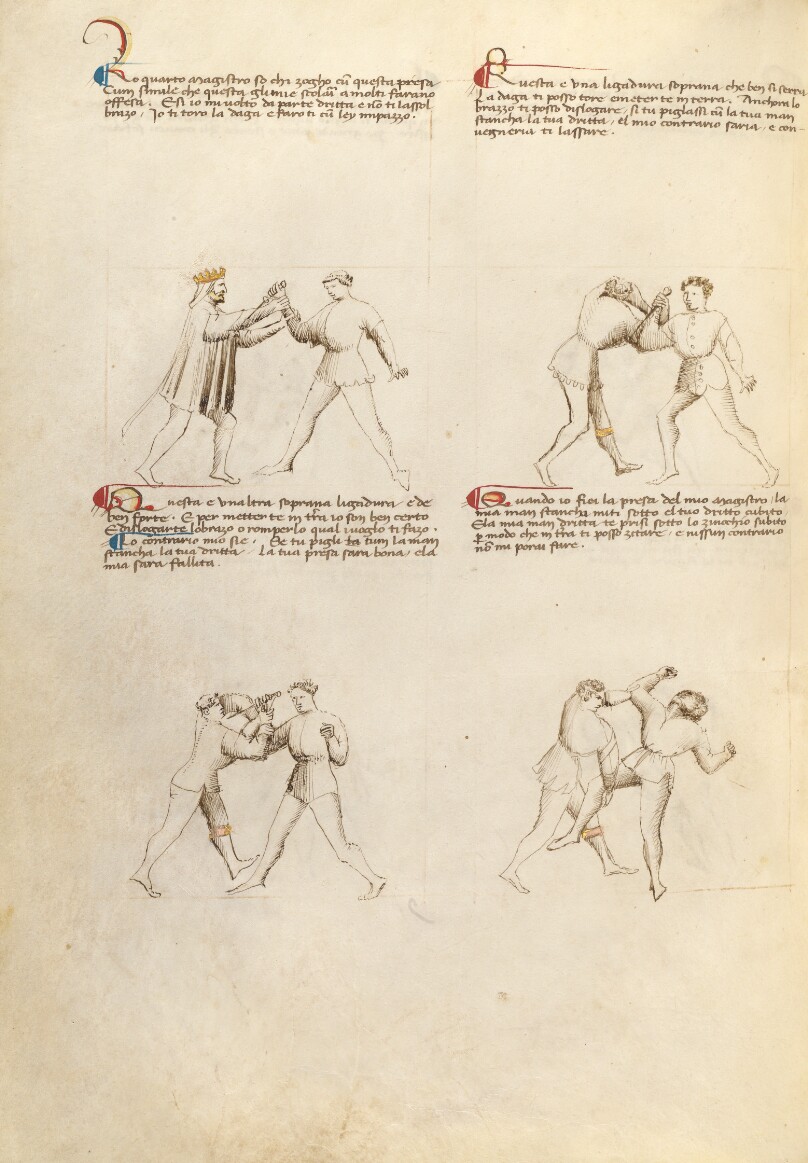 Lo quarto magistro so chi zogho cum questa presa
Cum simile che questa gli mie scolari a molti farano
offesa. E si io mi volto da parte dritta e non ti lassol
brazo, Io ti toro la daga e faroti cum ley impazzo.
Questa e una ligadura soprana che ben si serra
La daga ti posso tore e meter te in terra. Anchora lo
brazzo ti posso dislogare, si tu piglassi cum la tua man
stancha la tua dritta, el mio contrario saria, e con-
vegneria ti lassare.
Questa e unaltra soprana ligadura ede
ben forte. E per metter te in terra io son ben certo
E dislogarte lo brazo o romperlo qual i voglo ti fazo.
Lo contrario mio sie. Se tu pigli la tum la man
stancha la tua dritta. La tua presa sara bona, e la
mia sara fallita.
Quando io fici la presa del mio magistro, la
mia man stancha miti sotto el tuo dritto cubito.
E la mia man dritta te prisi sotto lo zinochio subito
per modo che in terra ti posso zitare, e nissun contrario
non mi porai fare.